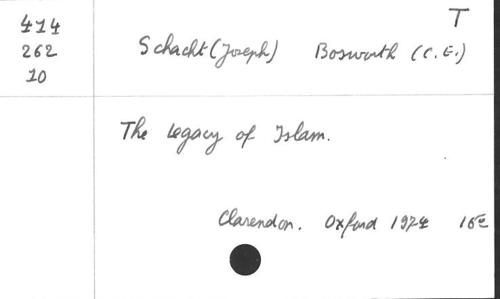 T
414
262
10
Schacht (Joseph) Bosworth (C. E.)
The Legacy of Islam.
Clarendon. Oxford 1974